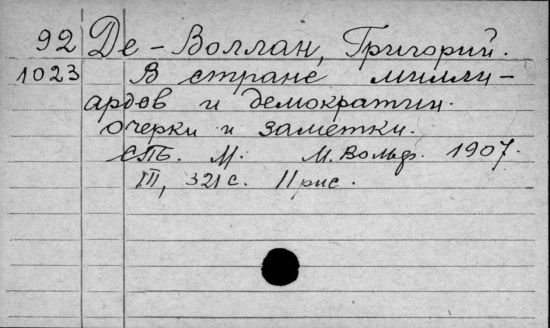 92 Де-Воллан, Григорий.
1023 В стране милли-
ардов и демократии.
очерки и заметки.
СПБ. М. М. Вольф. 1907.
III, 321 с. 11 рис.